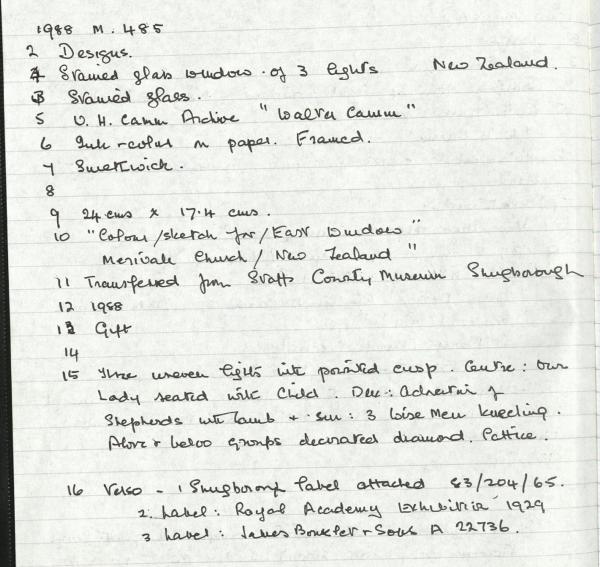 1988 M. 485
2 Designs.
4 Stained glass window of 3 lights New Zealand.
3 Stained glass.
5 W. H. Camm Archive "Walter Camm"
6 Ink + colour on paper. Framed.
7 Smethwick.
8
9 24 cms x 17.4 cms.
10 "Colour/sketch for/East Window"
Merivale Church/New Zealand"
11 Transferred from Staffs County Museum Shugborough
12 1988
13 Gift
14
15 Three uneven lights with pointed cusp. Centre: Our
Lady seated with Child. Dex: Adoration of
Shepherds with lamb + Sin: 3 Wise Men kneeling.
Above + below groups decorated diamond. Lattice.
16 Verso - 1 Shugborough label attached 83/204/65.
2. Label: Royal Academy Exhibition 1929
3 Label: James + Sons A 22736.